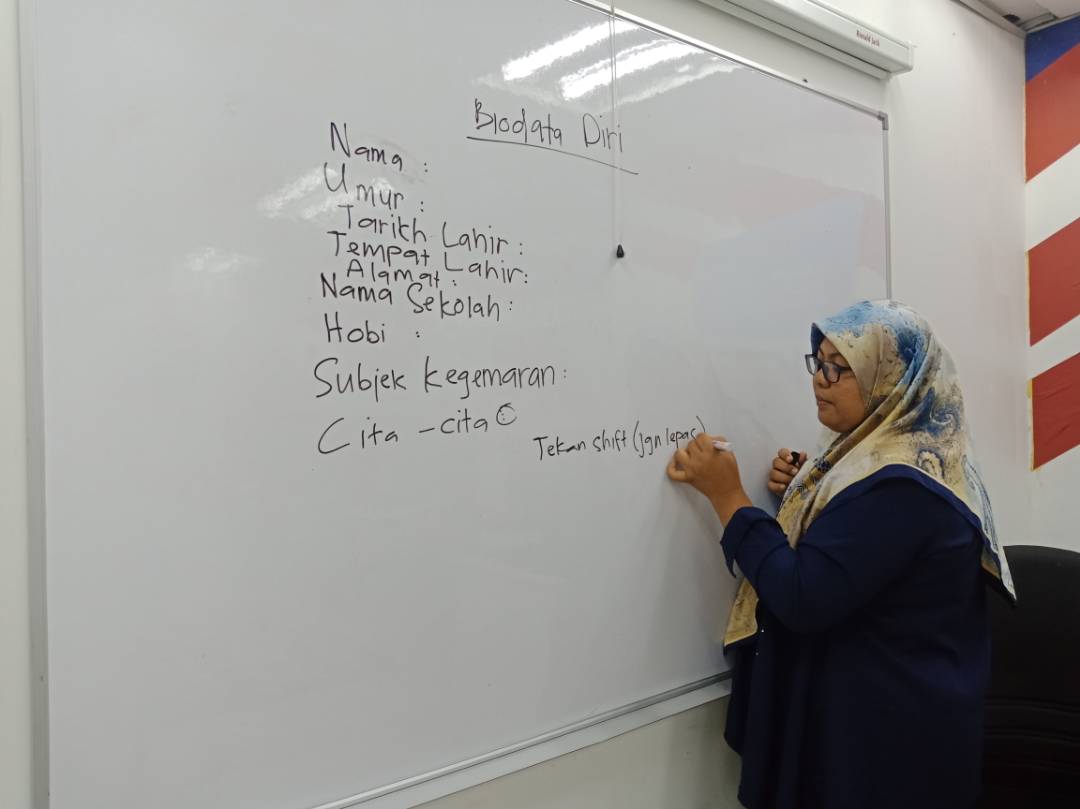 Biodata Diri
Nama :
Umur :
Tarikh Lahir :
Tempat Lahir :
Alamat :
Nama Sekolah :
Hobi :
Subjek kegemaran :
Cita - cita :
Tekan shift (jgn lepas)